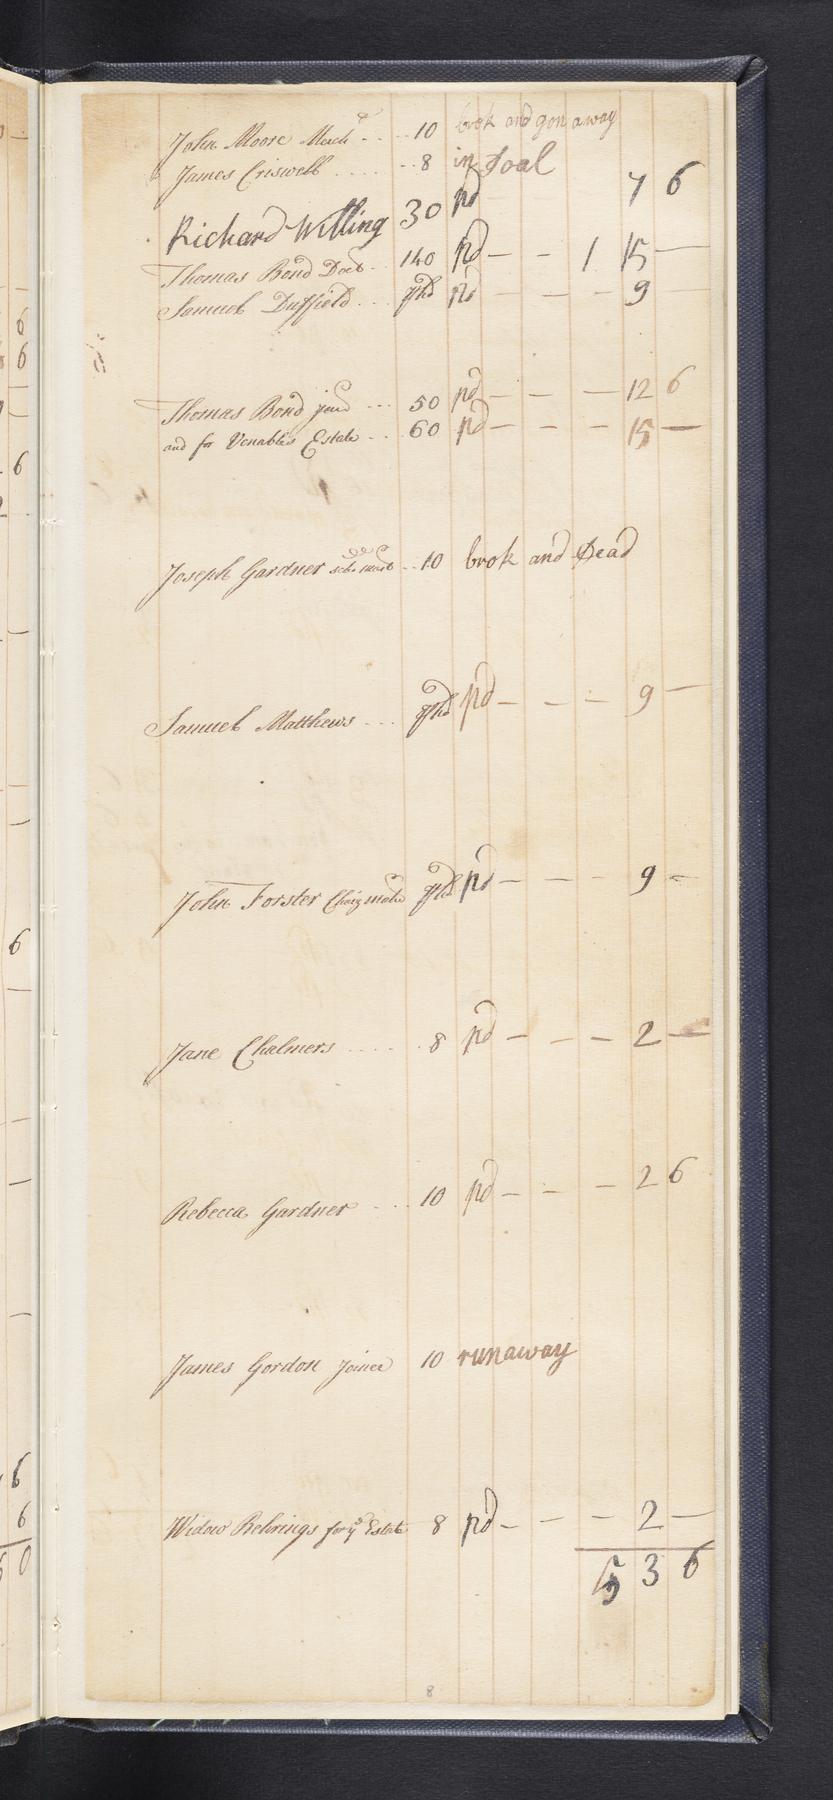 John Moore Mercht - - 10 brok and gon away
James Criswell - - - - 8 in Joal
Richard Willing 30 pd 7 6
Thomas Bond Doct - 140 pd - - 1 15 -
Samuel Duffield - - - pd - - - 9 -
Thomas Bond - - 50 pd - - - 12 6
and for Venables Estate - - 60 pd - - - 15 -
Joseph Gardner - - 10 brok and Dead
Samuel Matthews - - - pd - - - 9 -
John Forster pd - - - 9 -
Jane Chalmers - - - - 8 pd - - - 2 -
Rebecca Gardner - - - 10 pd - - - 2 6
James Gordon Joiner 10 runaway
Widow Rehrings for ye Estate 8 pd - - - 2 -
5 3 6
8
6
6
6
6
6
6
0